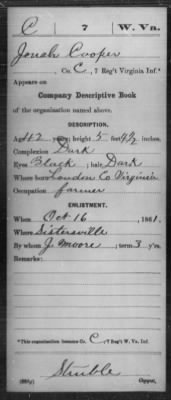 C 7 W. Va.
Jonah Cooper
, Co. C, 7 Reg't Virginia Inf.*
Appears on
Company Descriptive Book
of the organization named above.
DESCRIPTION.
Age 42 years; height 5 feet 9½ inches.
Complexion Dark
Eyes Black ; hair Dark
Where born Loudon Co Virginia
Occupation farmer
ENLISTMENT.
When Oct 16 , 1861.
Where Sistersville
By whom J. Moore ; term 3 y'rs.
Remarks:
*This organization became Co. C, 7 Reg't W. Va. Inf.
Struble
Copyist.